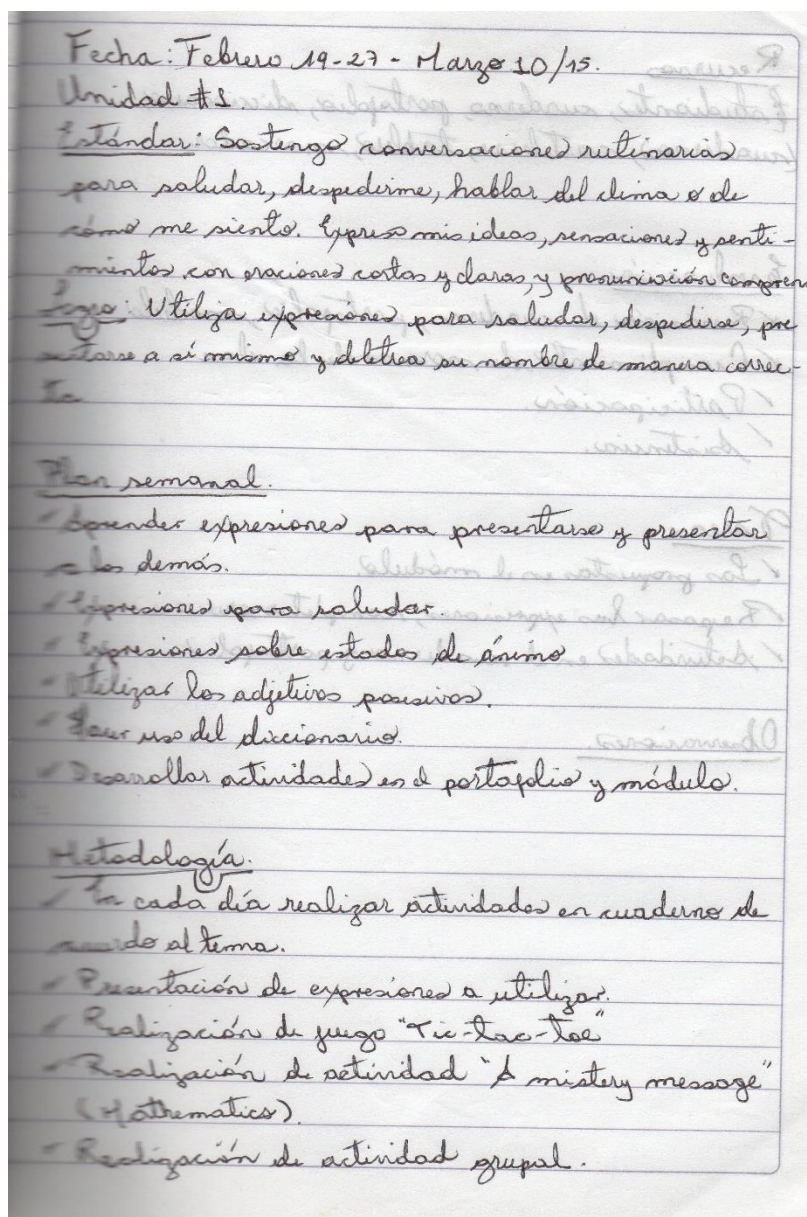 Fecha: Febrero 19-27 - Marzo 10/15.
Unidad #1.
Estándar: Sostengo conversaciones rutinarias
para saludar, despedirme, hablar del clima o de
cómo me siento. Expreso mis ideas, sensaciones y senti-
mientos con oraciones cortas y claras, y pronunciación compren
Logro: Utiliza expresiones para saludar, despedirse, pre
sentarse a sí mismo y deletrea su nombre de manera correc-
ta
Plan semanal.
✓ Aprender expresiones para presentarse y presentar
a los demás.
✓ Expresiones para saludar.
✓ Expresiones sobre estados de ánimo
✓ Utilizar los adjetivos posesivos.
✓ Hacer uso del diccionario.
✓ Desarrollar actividades en el portafolio y módulo.
Metodología.
✓ En cada día realizar actividades en cuaderno de
acuerdo al tema.
✓ Presentación de expresiones a utilizar.
✓ Realización de juego "Tic-tac-toe"
✓ Realización de actividad "A mistery message"
(Mathematics).
✓ Realización de actividad grupal.